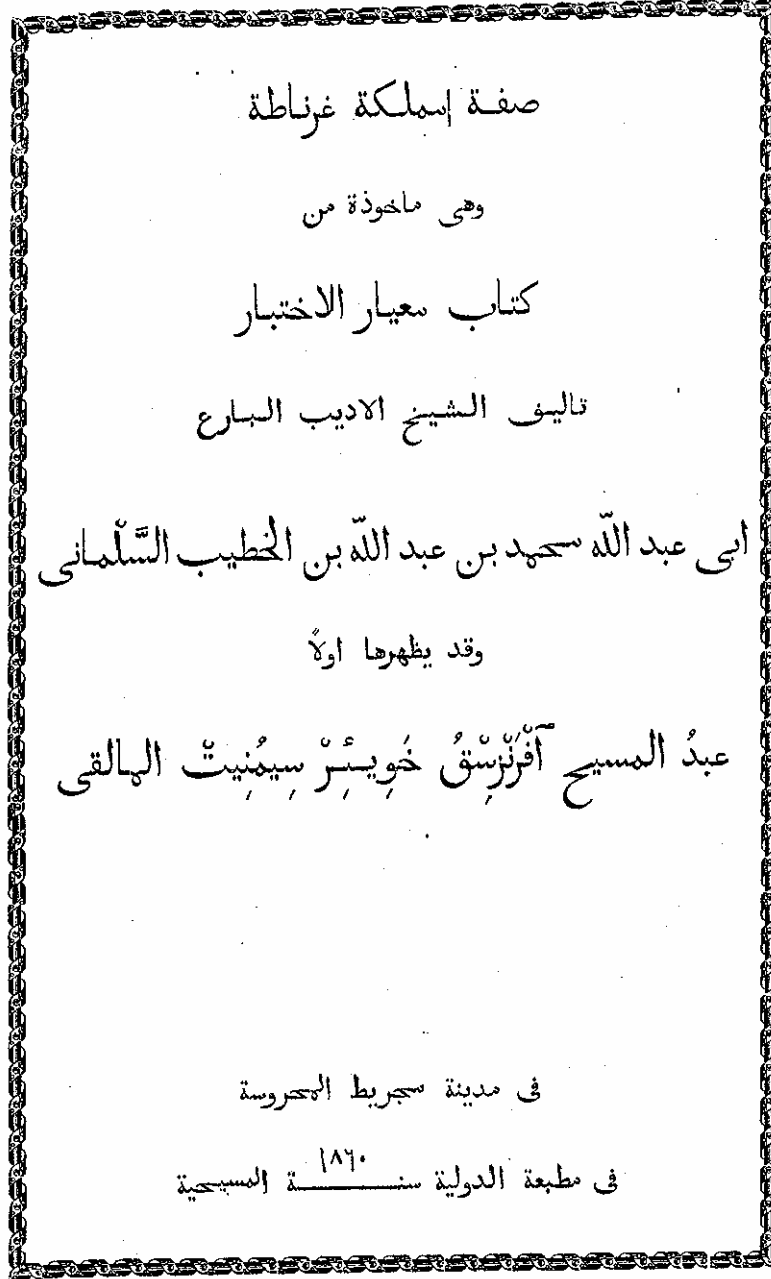 صفة المملكة غرناطة
وهى ماخوذة من
كتاب معيار الاختبار
تاليف الشيخ الاديب البارع
ابى عبد اللّه محمد بن عبد اللّه بن الخطيب السَّلْمانى
وقد يظهرها اولاً
عبدُ المسيح آفْرَنْسِسْقُ خَوِيِئِرْ سِيمُنِيتْ المالقى
فى مدينة مجريط المحروسة
فى مطبعة الدولية سنة ١٨٦٠ المسيحية